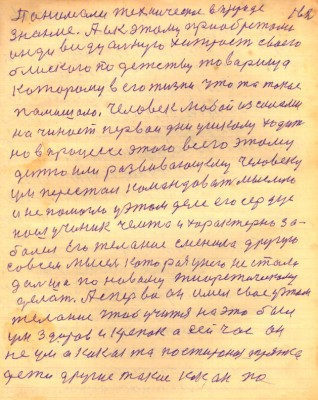 Понимали технически в природе
знание. А к этому приобретали
индивидуальную хитрость своего
близкого по детству товарища
которому в его жизни что то такое
помешало. Человек мовой из самого
начинает первои дни у школу ходить
но в процессе этого всего этому
дитю или развивающему человеку
ум перестал командовать мыслию
и не помогло у этом деле его сердце
ноея ученик чем то и характерно за-
болел Его желание сменила другую
совсем мысль которая у него не стала
дальше по новому теоретическому
делать. А сперва он имел свае у этом
желание чтоб учится на это были
ум здоров и крепок а сей час он
не ум а какая та постороная тряпка
дети другие такие как он по